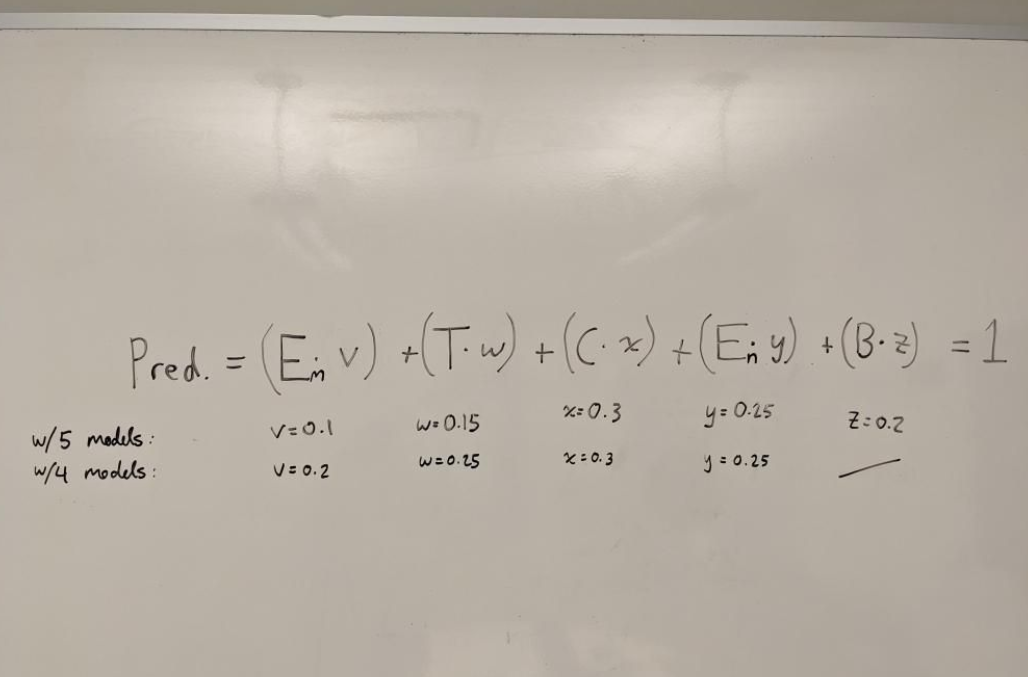 Pred. = (Eₘ· v) + (T· w) + (C· x) + (Eₙ· y) + (B· z) = 1
w/5 models: v=0.1 w=0.15 x=0.3 y=0.25 z=0.2
w/4 models: v=0.2 w=0.25 x=0.3 y=0.25 —